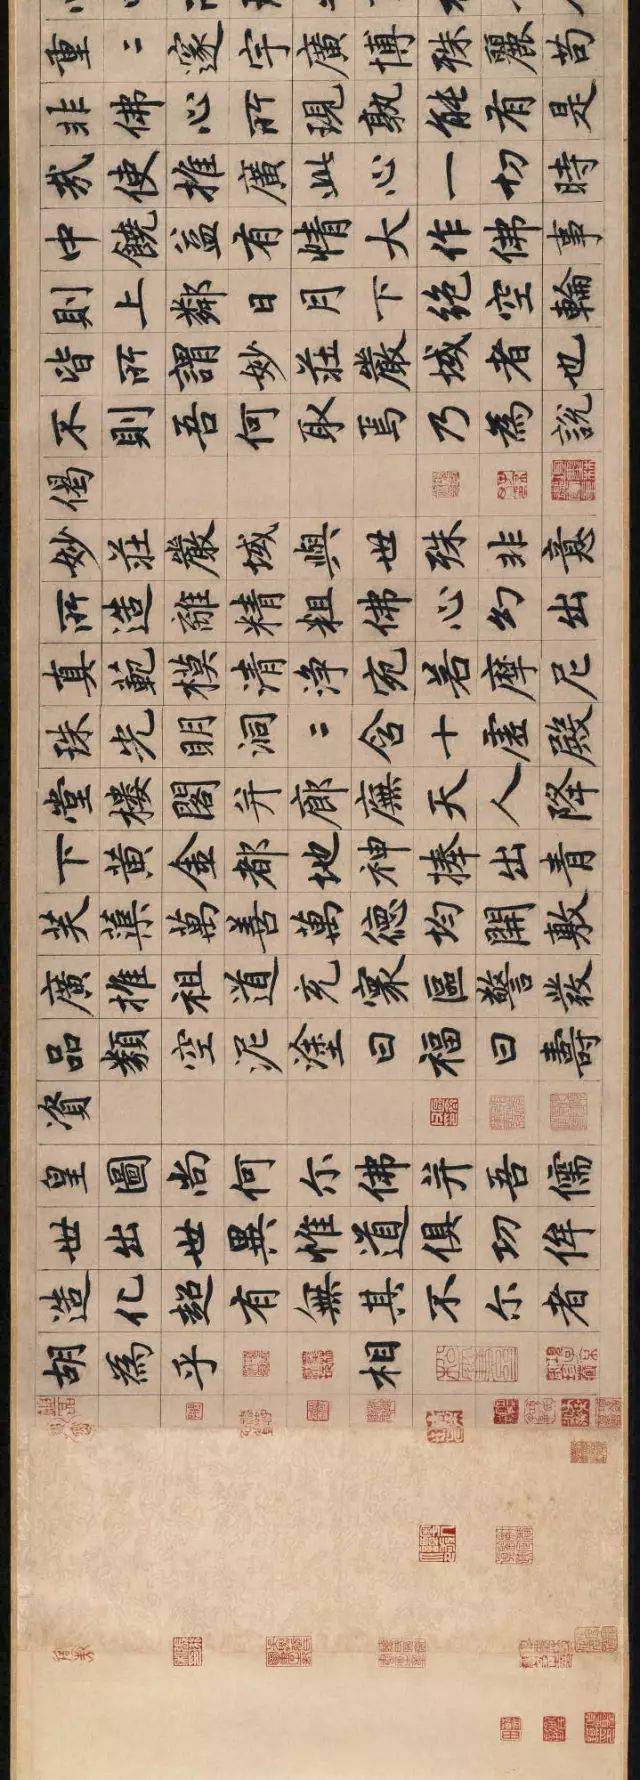 重二邃宇廣博殊麗苟
非佛心所現孰能有是
哉使推廣此心一切時
中饒益有情大作佛事
則上鄰日月下絕空輪
皆所謂妙莊嚴域者也
不則吾何取焉乃為說
偈
妙莊嚴域與世殊非意
所造離精粗佛心幻出
真範模清淨宛若摩尼
珠光明洞二含十虛殿
堂樓閣并廊廡天人降
下黃金都地神捧出青
芙蕖萬善萬德均開敷
廣推祖道充寰區警教
品類空泥塗曰福曰壽
資
皇圖尚何尔佛并吾儒
世出世異惟道俱功侔
造化超有無其不尔者
胡為乎 相